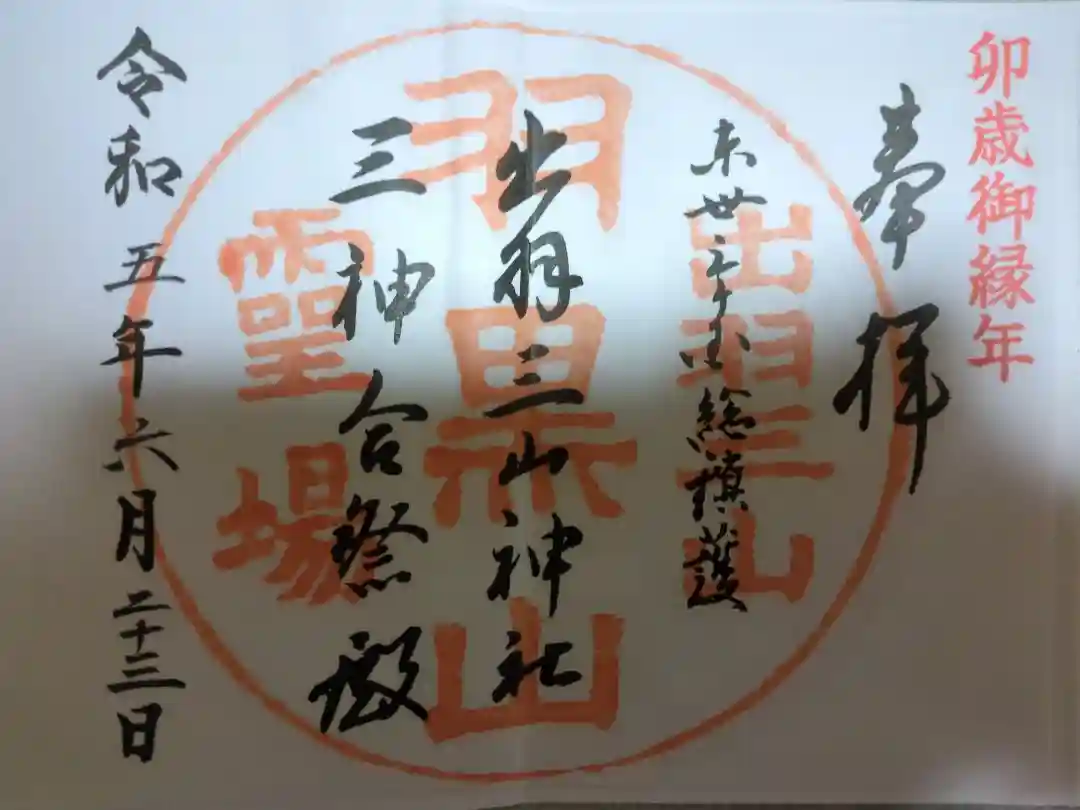 卯歳御縁年
奉拝
東世三十三国総鎮護
出羽三山神社
三神合祭殿
令和五年六月二十三日
出羽三山
羽黒山
霊場